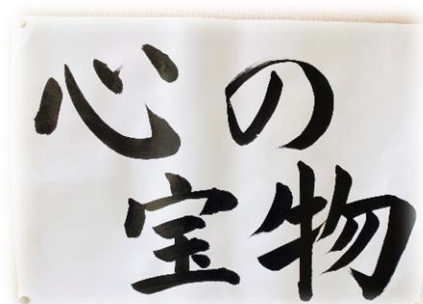 心の
宝物